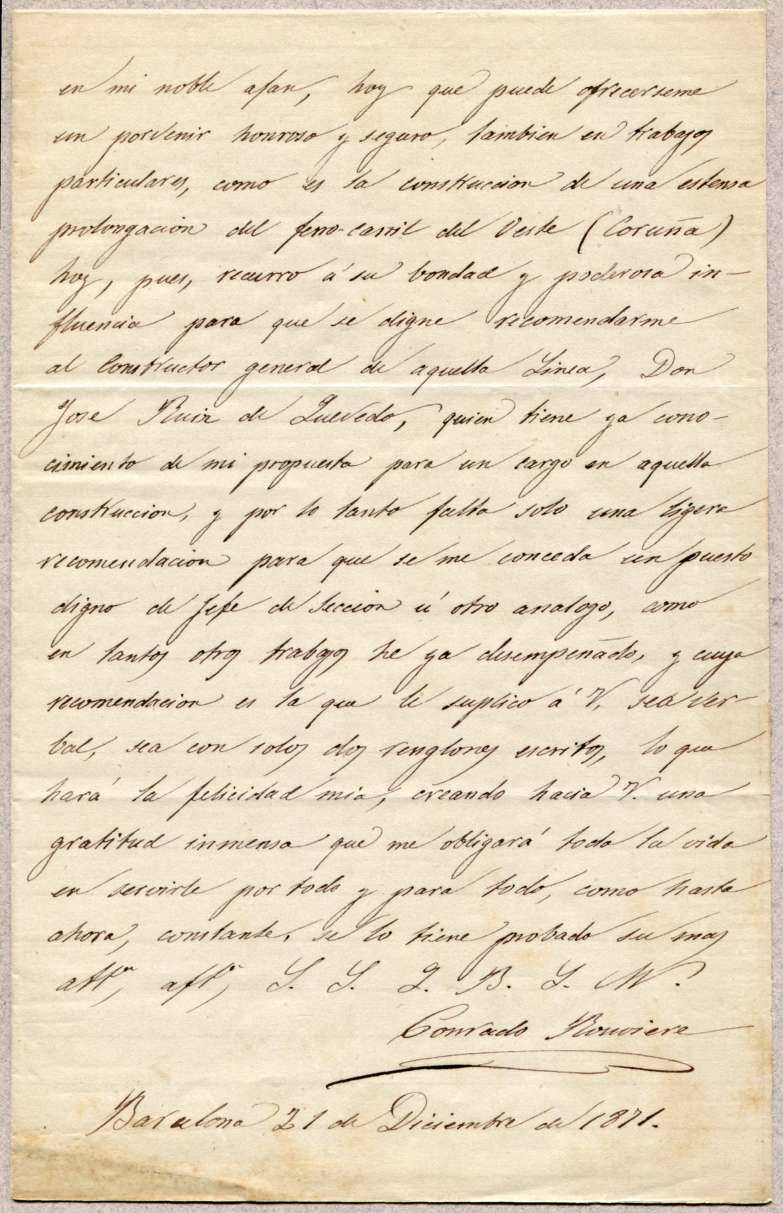 en mi noble afan, hoy que puede ofrecerseme
un porvenir honroso y seguro, tambien en trabajos
particulares, como es la construccion de una estensa
prolongación del ferro-carril del Oeste (Coruña)
hoy, pues, recurro á su bondad y poderosa in-
fluencia para que se digne recomendarme
al Constructor general de aquella Linea, Don
Jose Ruiz de Quevedo, quien tiene ya cono-
cimiento de mi propuesta para un cargo en aquella
construccion, y por lo tanto falta solo una ligera
recomendacion para que se me conceda un puesto
digno de Jefe de Seccion ú otro analogo, como
en tantos otros trabajos he ya desempeñado, y cuya
recomendacion es la que le suplico á V. sea ver-
bal, sea con solos dos renglones escritos, lo que
hará la felicidad mia, creando hacia V. una
gratitud inmensa que me obligará toda la vida
en servirle por todo y para todo, como hasta
ahora, constante, se lo tiene probado su mas
att°, aff°, S. S. Q. B. S. M.
Conrado Rouviere
Barcelona 21 de Diciembre de 1871.